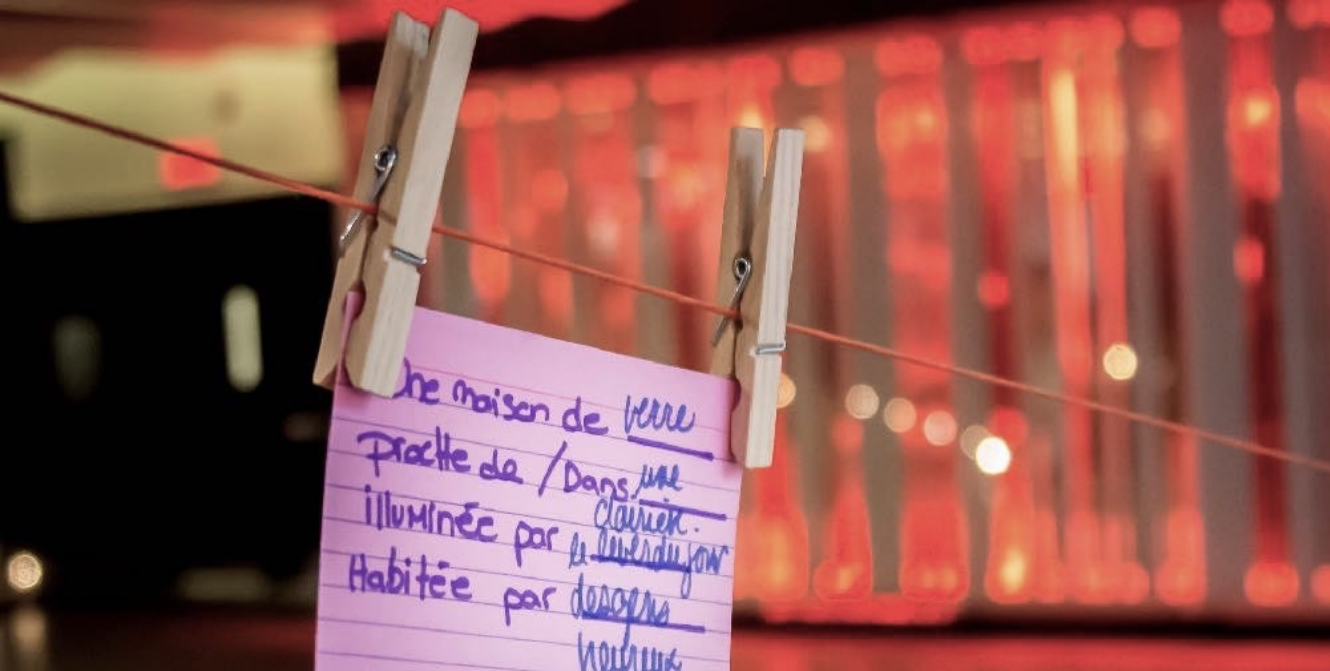 Une maison de verre
proche de / Dans une
clairière.
illuminée par le lever du jour
Habitée par des gens
heureux